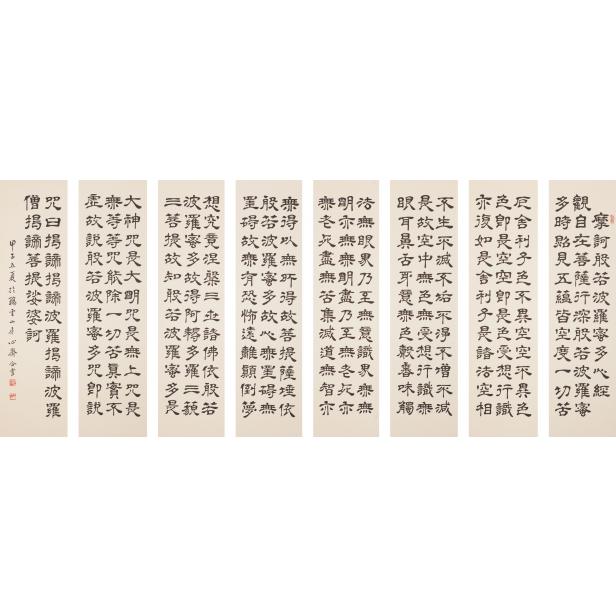 摩訶般若波羅蜜多心經
觀自在菩薩行深般若波羅蜜
多時照見五蘊皆空度一切苦
厄舍利子色不異空空不異色
色即是空空即是色受想行識
亦復如是舍利子是諸法空相
不生不滅不垢不淨不增不減
是故空中無色無受想行識無
眼耳鼻舌身意無色聲香味觸
法無眼界乃至無意識界無無
明亦無無明盡乃至無老死亦
無老死盡無苦集滅道無智亦
無得以無所得故菩提薩埵依
般若波羅蜜多故心無罣礙無
罣礙故無有恐怖遠離顛倒夢
想究竟涅槃三世諸佛依般若
波羅蜜多故得阿耨多羅三藐
三菩提故知般若波羅蜜多是
大神咒是大明咒是無上咒是
無等等咒能除一切苦真實不
虛故說般若波羅蜜多咒即說
咒曰揭諦揭諦波羅揭諦波羅
僧揭諦菩提娑婆訶
甲子 夏於 雲山房心齋 書